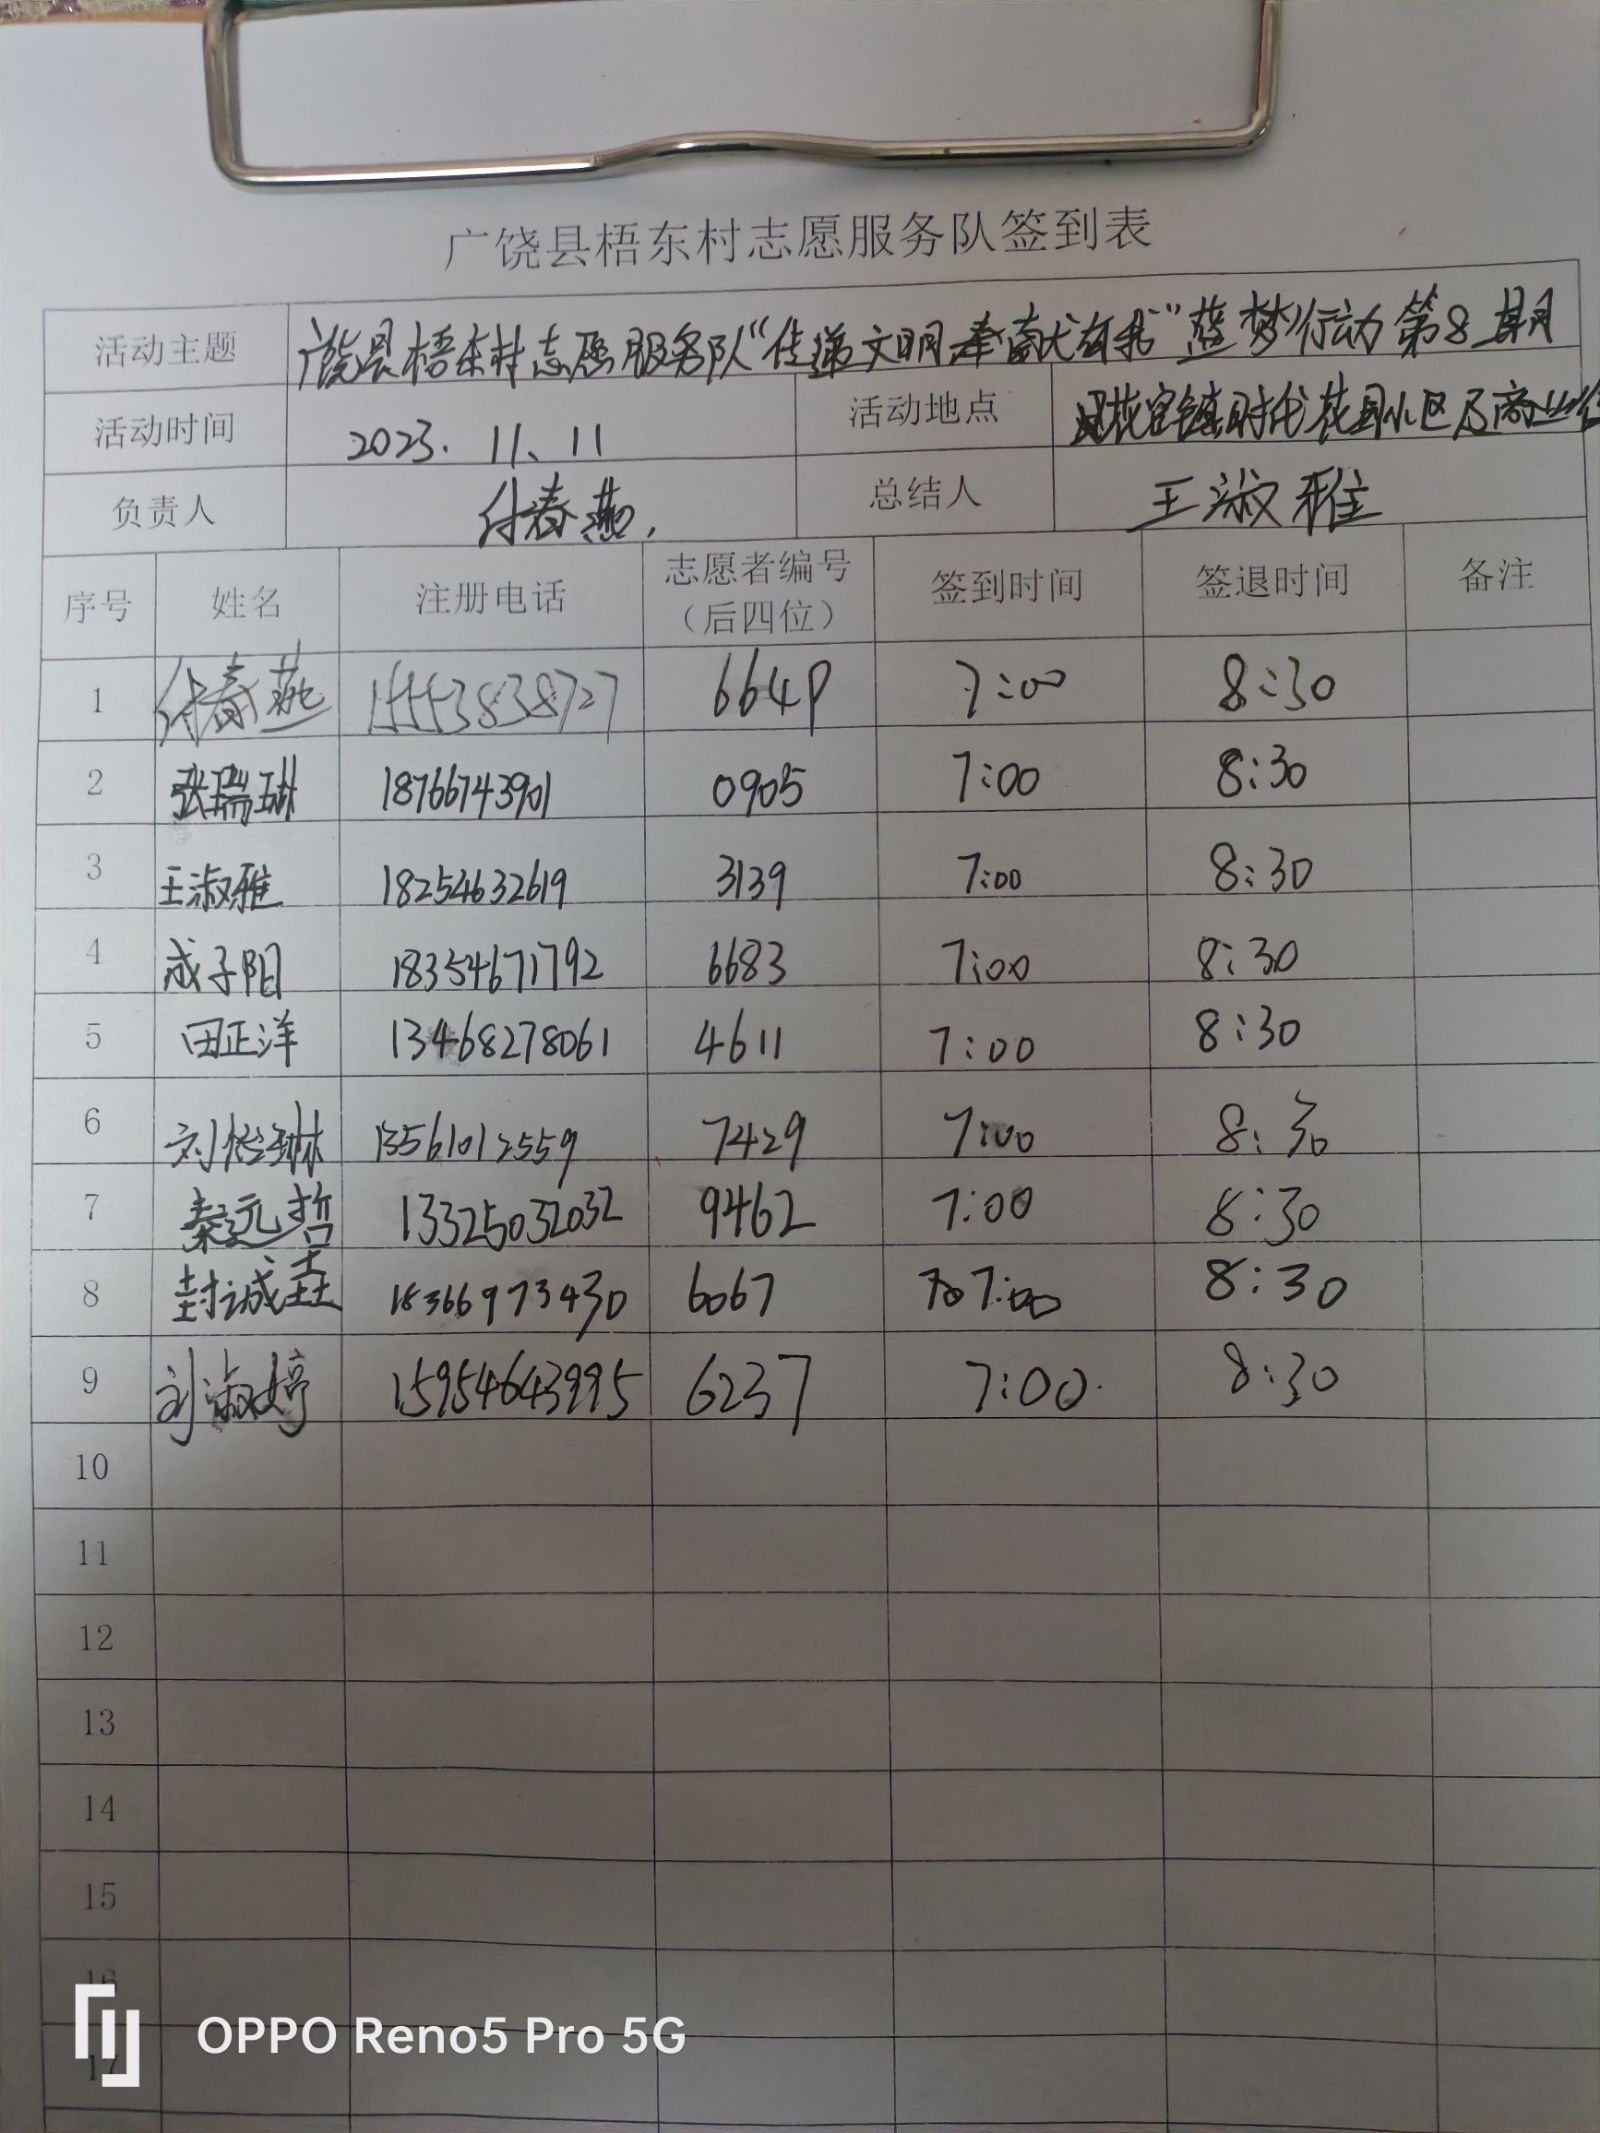 广饶县梧东村志愿服务队签到表
活动主题 广饶县梧东村志愿服务队“传递文明奉献有我”蓝梦行动第8期
活动时间 2023.11、11 活动地点 花官镇时代花园小区及商业街
负责人 付春燕 总结人 王淑雅
序号 姓名 注册电话 志愿者编号（后四位） 签到时间 签退时间 备注
1 付春燕 15553838727 664P 7:00 8:30
2 张瑞琳 18766743901 0905 7:00 8:30
3 王淑雅 18254632619 3139 7:00 8:30
4 成子阳 18354671792 6683 7:00 8:30
5 田正洋 13468278061 4611 7:00 8:30
6 刘怡琳 13561012559 7429 7:00 8:30
7 秦远哲 13325032032 9462 7:00 8:30
8 封诚垚 18366973430 6067 7:00 8:30
9 刘淑婷 15954643995 6237 7:00 8:30
10
11
12
13
14
15
16
17
OPPO Reno5 Pro 5G